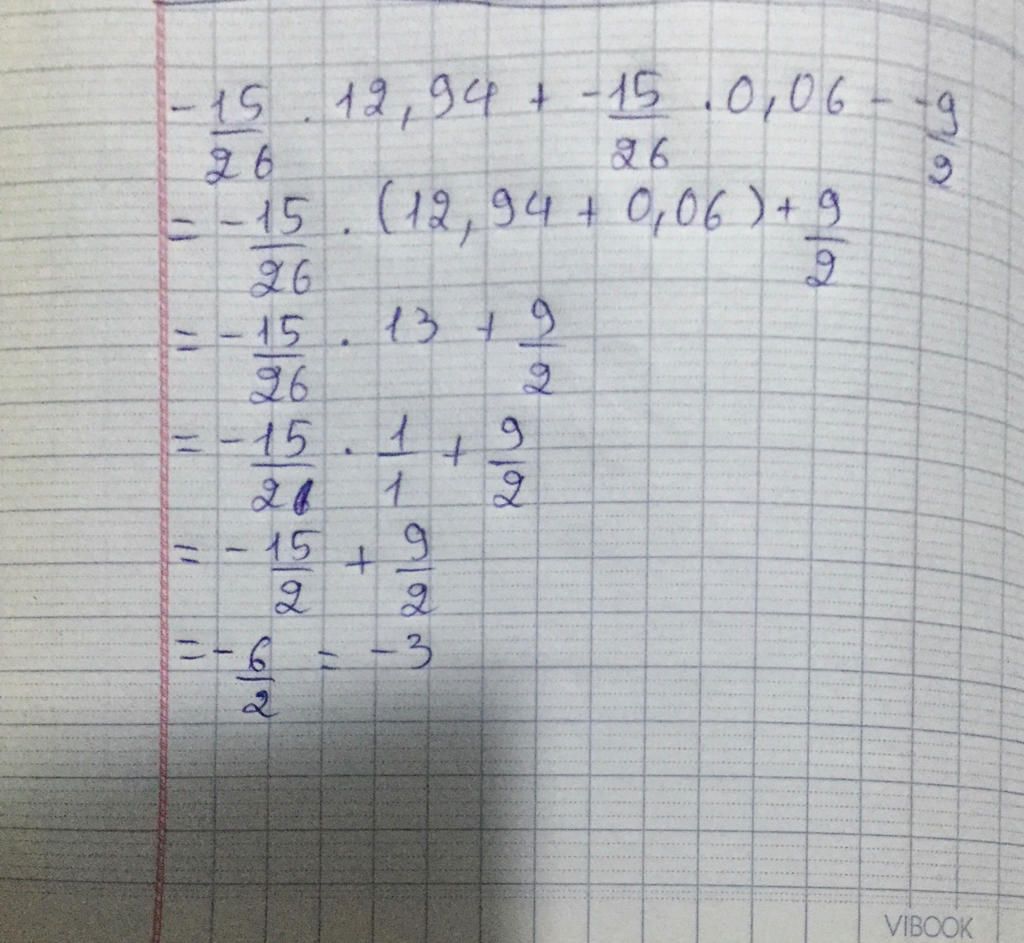 -15/26 . 12,94 + -15/26 . 0,06 - -9/2
= -15/26 . (12,94 + 0,06) + 9/2
= -15/26 . 13 + 9/2
= -15/21 . 1/1 + 9/2
= -15/2 + 9/2
= -6/2 = -3
VIBOOK